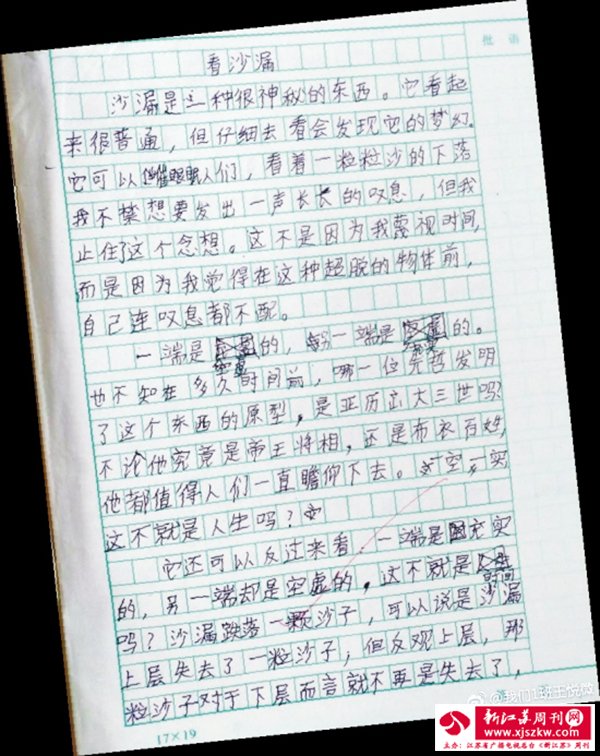 批 语
看沙漏
沙漏是一种很神秘的东西。它看起
来很普通，但仔细去看会发现它的梦幻。
它可以催眠人们，看着一粒粒沙的下落
我不禁想要发出一声长长的叹息，但我
止住了这个念想。这不是因为我蔑视时间，
而是因为我觉得在这种超脱的物体前，
自己连叹息都不配。
一端是空虚的，另一端是充实的。
也不知在多久时间前，哪一位先哲发明
了这个东西的原型，是亚历山大三世吗？
不论他究竟是帝王将相，还是布衣百姓，
他都值得人们一直瞻仰下去。一空一实
这不就是人生吗？
它还可以反过来看，一端是充实
的，另一端却是空虚的，这不就是时间
吗？沙漏跌落一颗沙子，可以说是沙漏
上层失去了一粒沙子，但反观上层，那
粒沙子对于下层而言就不再是失去了，
17×19
@我们1班王悦微
新江苏周刊网
www.xjszkw.com
主办：江苏省广播电视总台《新江苏》周刊